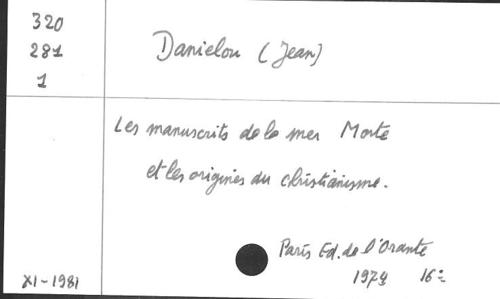 320
281
1
Danielou (Jean)
Les manuscrits de la mer Morte
et les origines du christianisme.
Paris Ed. de l'Orante
1974 16º
XI-1981